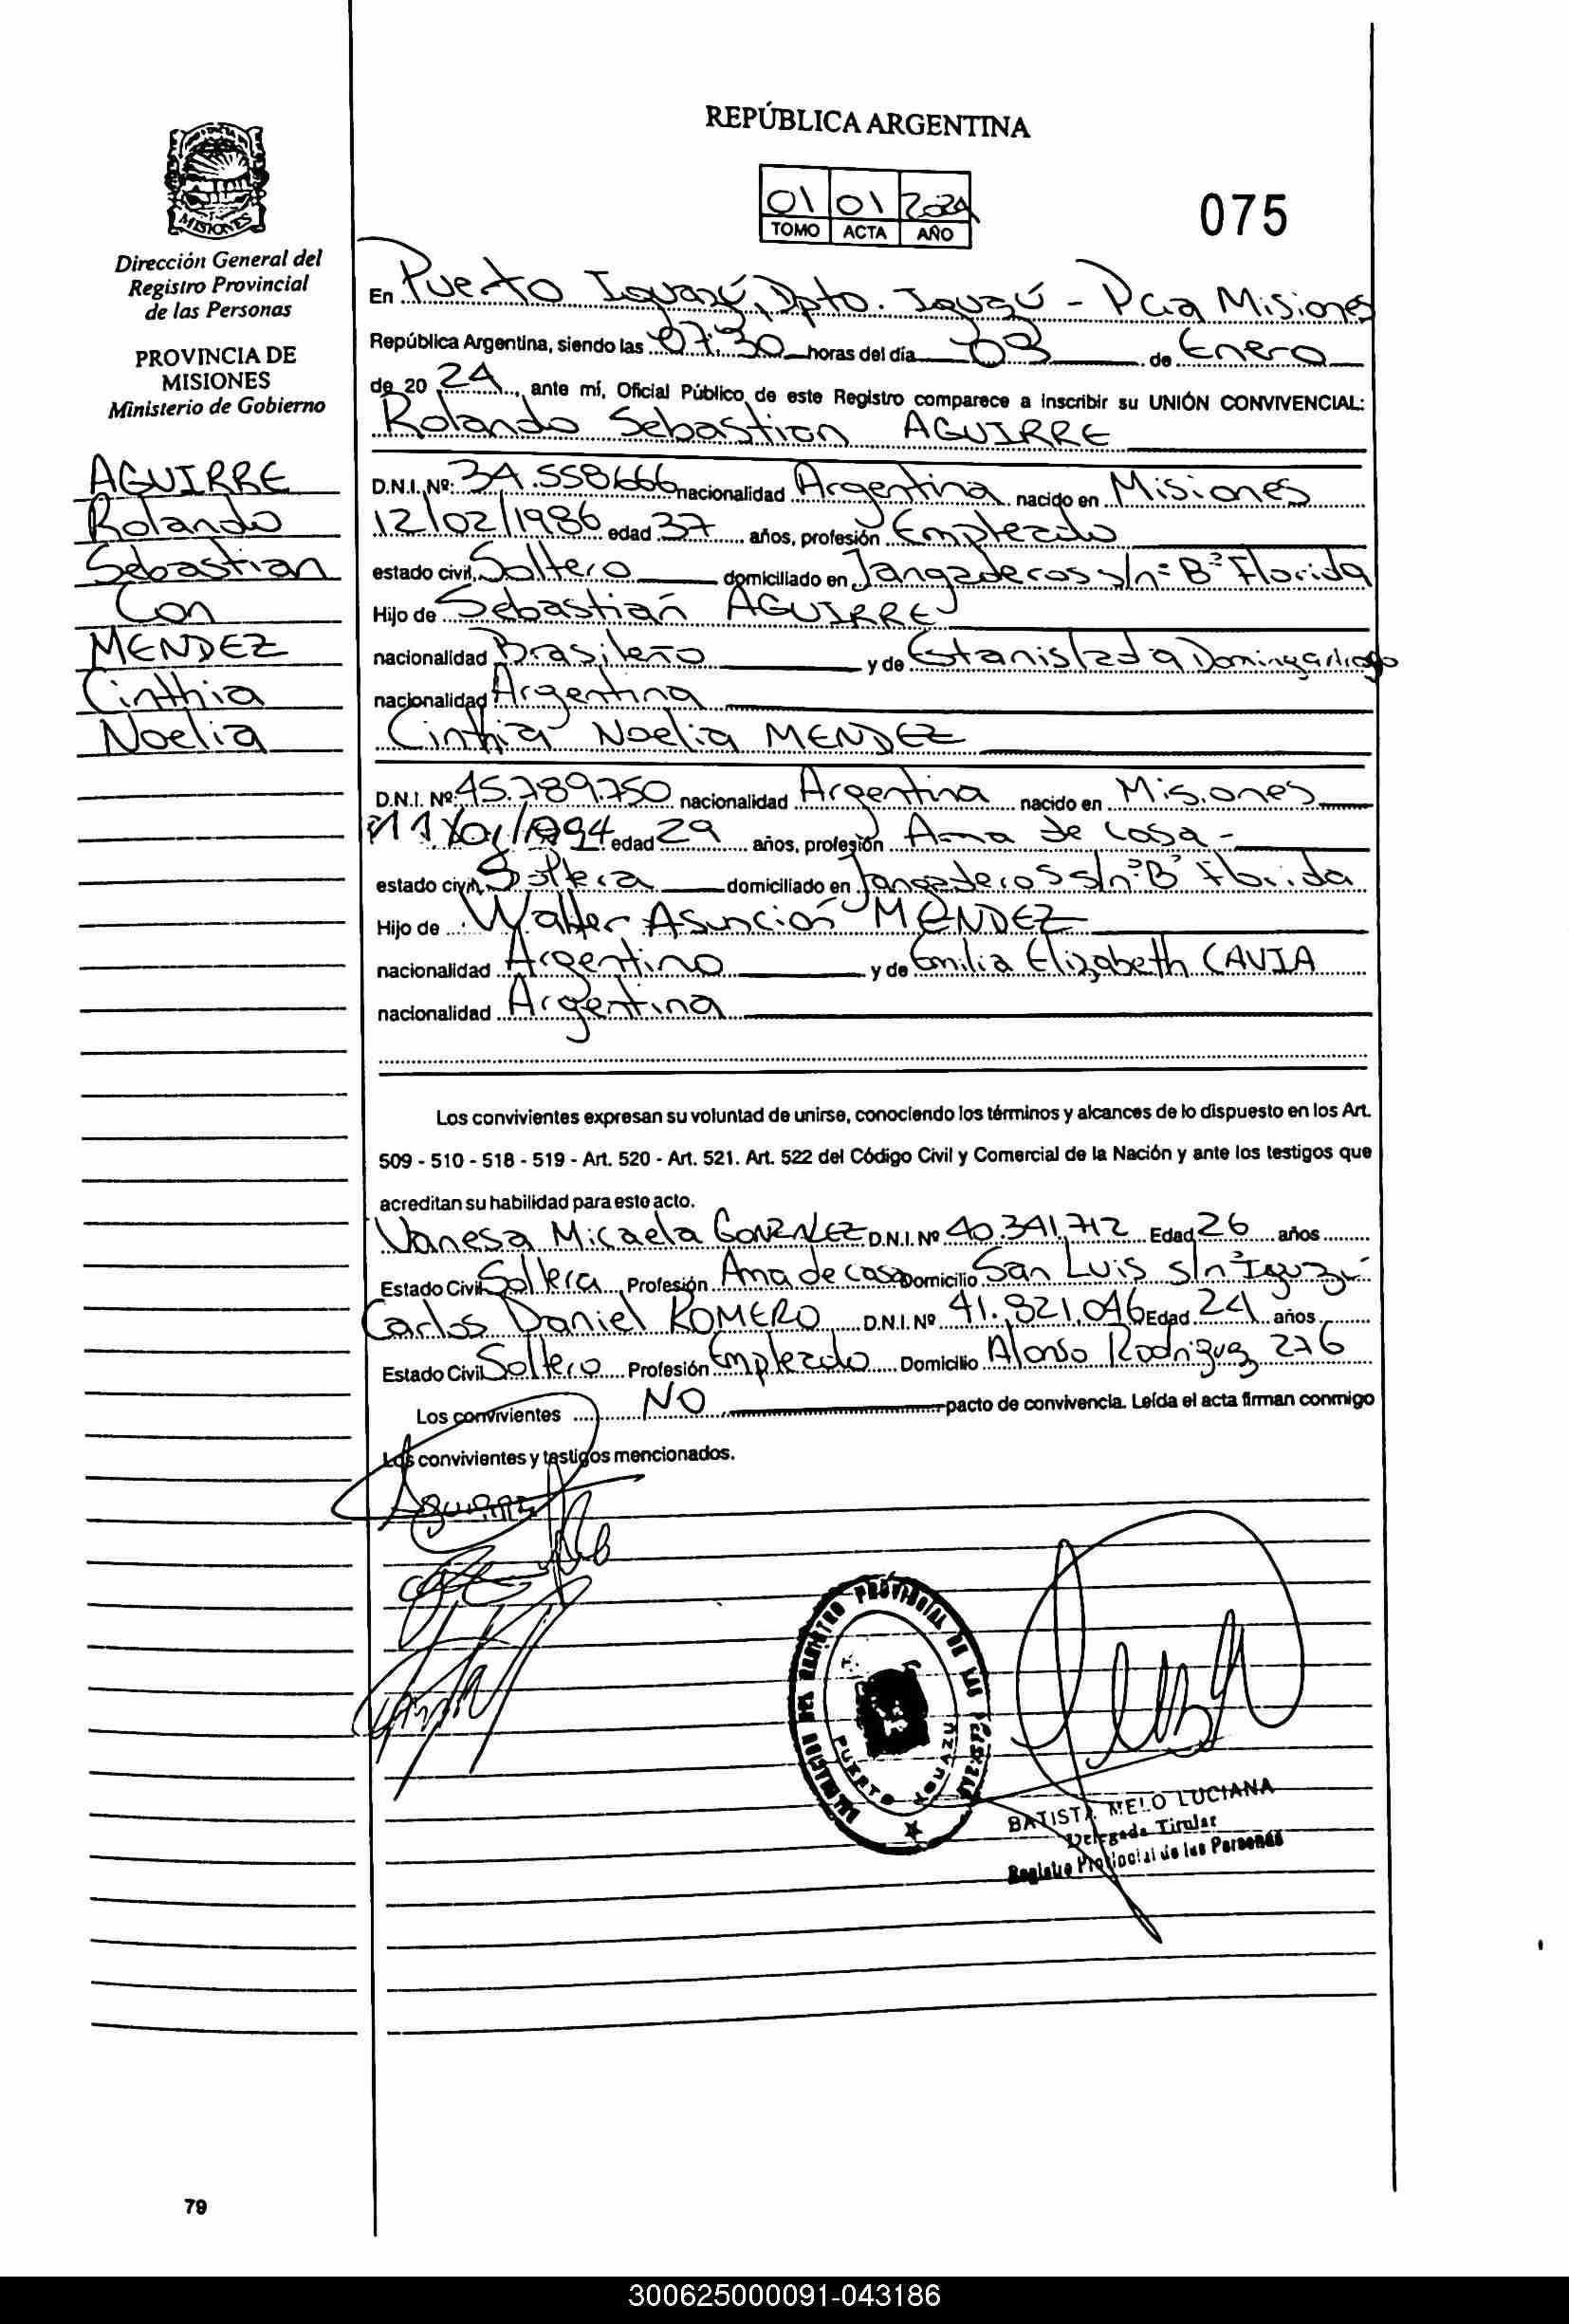 REPÚBLICA ARGENTINA
01 01 2024
TOMO ACTA AÑO
075
MISIONES
Dirección General del
Registro Provincial
de las Personas
PROVINCIA DE
MISIONES
Ministerio de Gobierno
AGUIRRE
Rolando
Sebastian
Con
MENDEZ
Cinthia
Noelia
En Puerto Iguazú, Dpto. Iguazú - Pcia Misiones
República Argentina, siendo las 07:30 horas del día 03 de Enero
de 20 24, ante mí, Oficial Público de este Registro comparece a inscribir su UNIÓN CONVIVENCIAL:
Rolando Sebastian AGUIRRE
D.N.I. Nº: 34.558666 nacionalidad Argentina nacido en Misiones
12/02/1986 edad 37 años, profesión Empleado
estado civil, Soltero domiciliado en Jangaderos s/nº Bº Florida
Hijo de Sebastián AGUIRRE
nacionalidad Brasileño y de Estanislada Dominga
nacionalidad Argentina
Cinthia Noelia MENDEZ
D.N.I. Nº: 45.789.750 nacionalidad Argentina nacido en Misiones
/1994 edad 29 años, profesión Ama de casa -
estado civil, Soltera domiciliado en Jangaderos s/nº Bº Florida
Hijo de Walter Asunción MENDEZ
nacionalidad Argentino y de Emilia Elizabeth CAVIA
nacionalidad Argentina
Los convivientes expresan su voluntad de unirse, conociendo los términos y alcances de lo dispuesto en los Art.
509 - 510 - 518 - 519 - Art. 520 - Art. 521. Art. 522 del Código Civil y Comercial de la Nación y ante los testigos que
acreditan su habilidad para este acto.
Vanesa Micaela GONZALEZ D.N.I. Nº 40.341.712 Edad 26 años
Estado Civil Soltera Profesión Ama de casa Domicilio San Luis s/n Iguazú
Carlos Daniel ROMERO D.N.I. Nº 41.821.046 Edad 24 años
Estado Civil Soltero Profesión Empleado Domicilio Alonso Rodriguez 276
Los convivientes NO pacto de convivencia. Leída el acta firman conmigo
Los convivientes y testigos mencionados.
DELEGACION DEL REGISTRO PROVINCIAL DE LAS PERSONAS
PUERTO IGUAZU
BATISTA MELO LUCIANA
Delegada Titular
Registro Provincial de las Personas
79
300625000091-043186